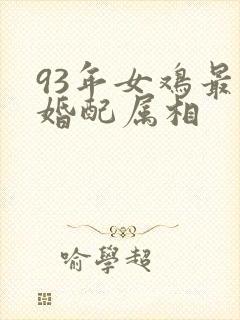 93年女鸡最
婚配属相
喻學超